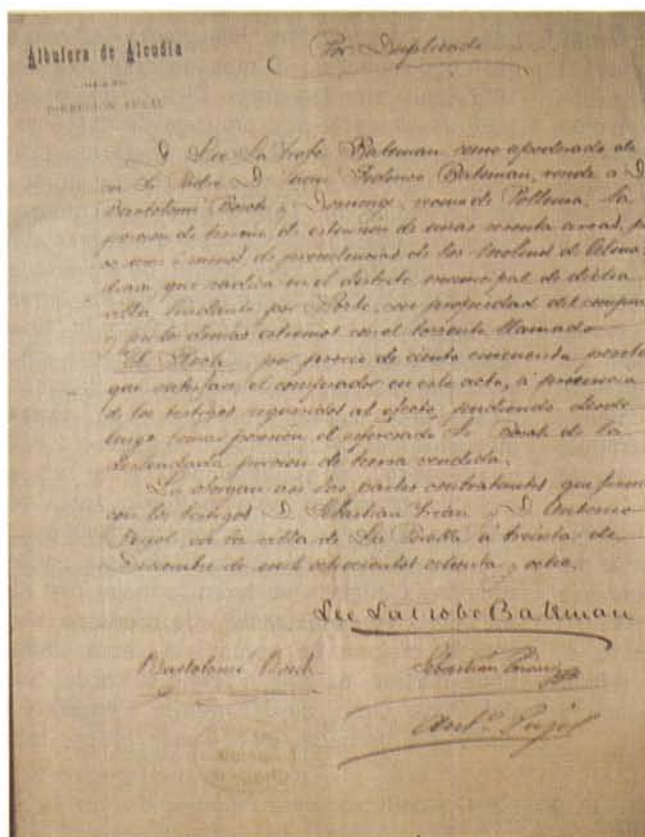 Albufera de Alcudia
Por Duplicado
DIRECCIÓN LOCAL
D. Lee La Trobe Bateman como apoderado de
su Sr. Padre D. Federico Bateman, vende a D.
Bartolomé Bosch y, vecino de Pollensa, la
porcion de terreno de estension de areas areas,
ó menos de procedencias de los
que radica en el distrito municipal de dicha
villa lindante por Norte, con propiedad del
y por los demas estremos con el torrente llamado
por precio de ciento cincuenta
que satisface el comprador en este acto, á presencia
de los testigos requeridos al efecto, pudiendo desde
luego tomar posesión el espresado Sr. Bosch de la
porcion de tierra vendida.
Lo otorgan asi las partes contratantes que
con los testigos D. Sebastian y D. Antonio
Pujol, en la villa de La Puebla á treinta de
de mil ochocientos ochenta y ocho.
Lee LaTrobe Bateman
Bartolomé Bosch
Sebastian
Ant.º Pujol